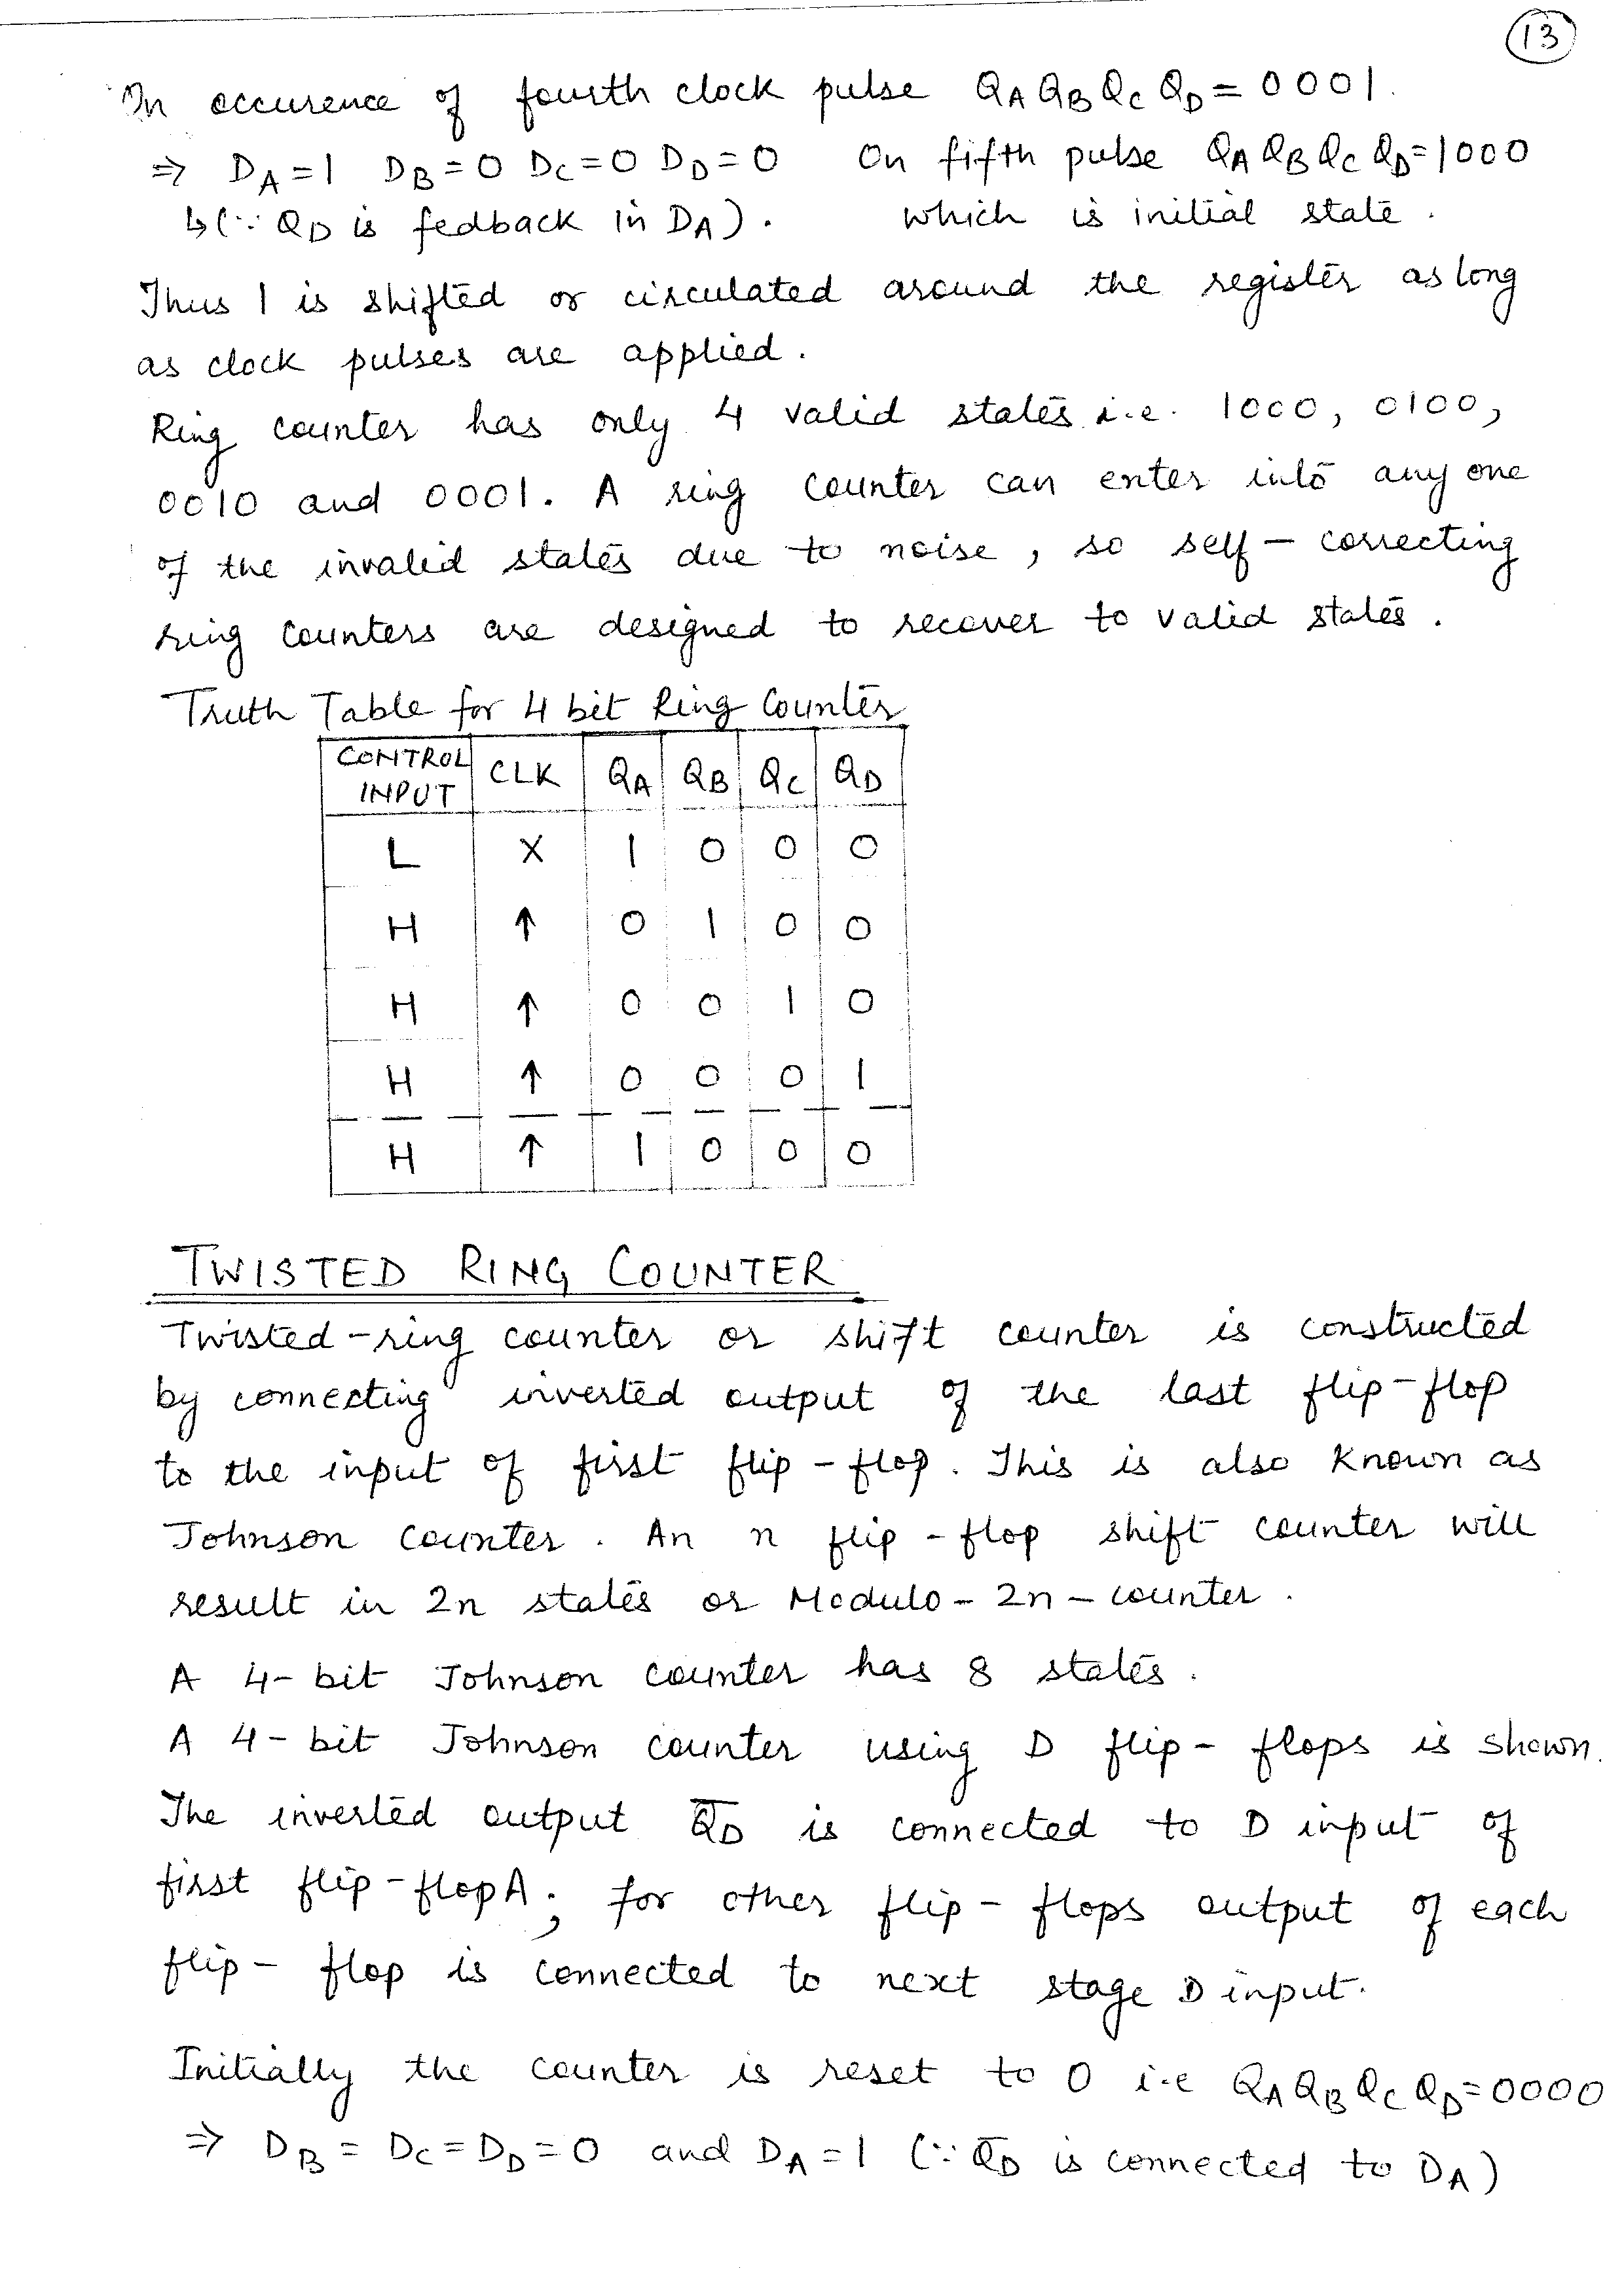 13
In occurence of fourth clock pulse QA QB QC QD = 0001.
⇒ DA=1 DB=0 DC=0 DD=0 On fifth pulse QA QB QC QD=1000
↳(∵ QD is fedback in DA). which is initial state.
Thus 1 is shifted or circulated around the register as long
as clock pulses are applied.
Ring counter has only 4 valid states i.e. 1000, 0100,
0010 and 0001. A ring counter can enter into any one
of the invalid states due to noise, so self-correcting
ring counters are designed to recover to valid states.
Truth Table for 4 bit Ring Counter
CONTROL INPUT CLK QA QB QC QD
L X 1 0 0 0
H ↑ 0 1 0 0
H ↑ 0 0 1 0
H ↑ 0 0 0 1
H ↑ 1 0 0 0
TWISTED RING COUNTER
Twisted-ring counter or shift counter is constructed
by connecting inverted output of the last flip-flop
to the input of first flip-flop. This is also known as
Johnson counter. An n flip-flop shift counter will
result in 2n states or Modulo-2n-counter.
A 4-bit Johnson counter has 8 states.
A 4-bit Johnson counter using D flip-flops is shown.
The inverted output Q̅D is connected to D input of
first flip-flop A; for other flip-flops output of each
flip-flop is connected to next stage D input.
Initially the counter is reset to 0 i.e QA QB QC QD=0000
⇒ DB = DC = DD = 0 and DA = 1 (∵ Q̅D is connected to DA)